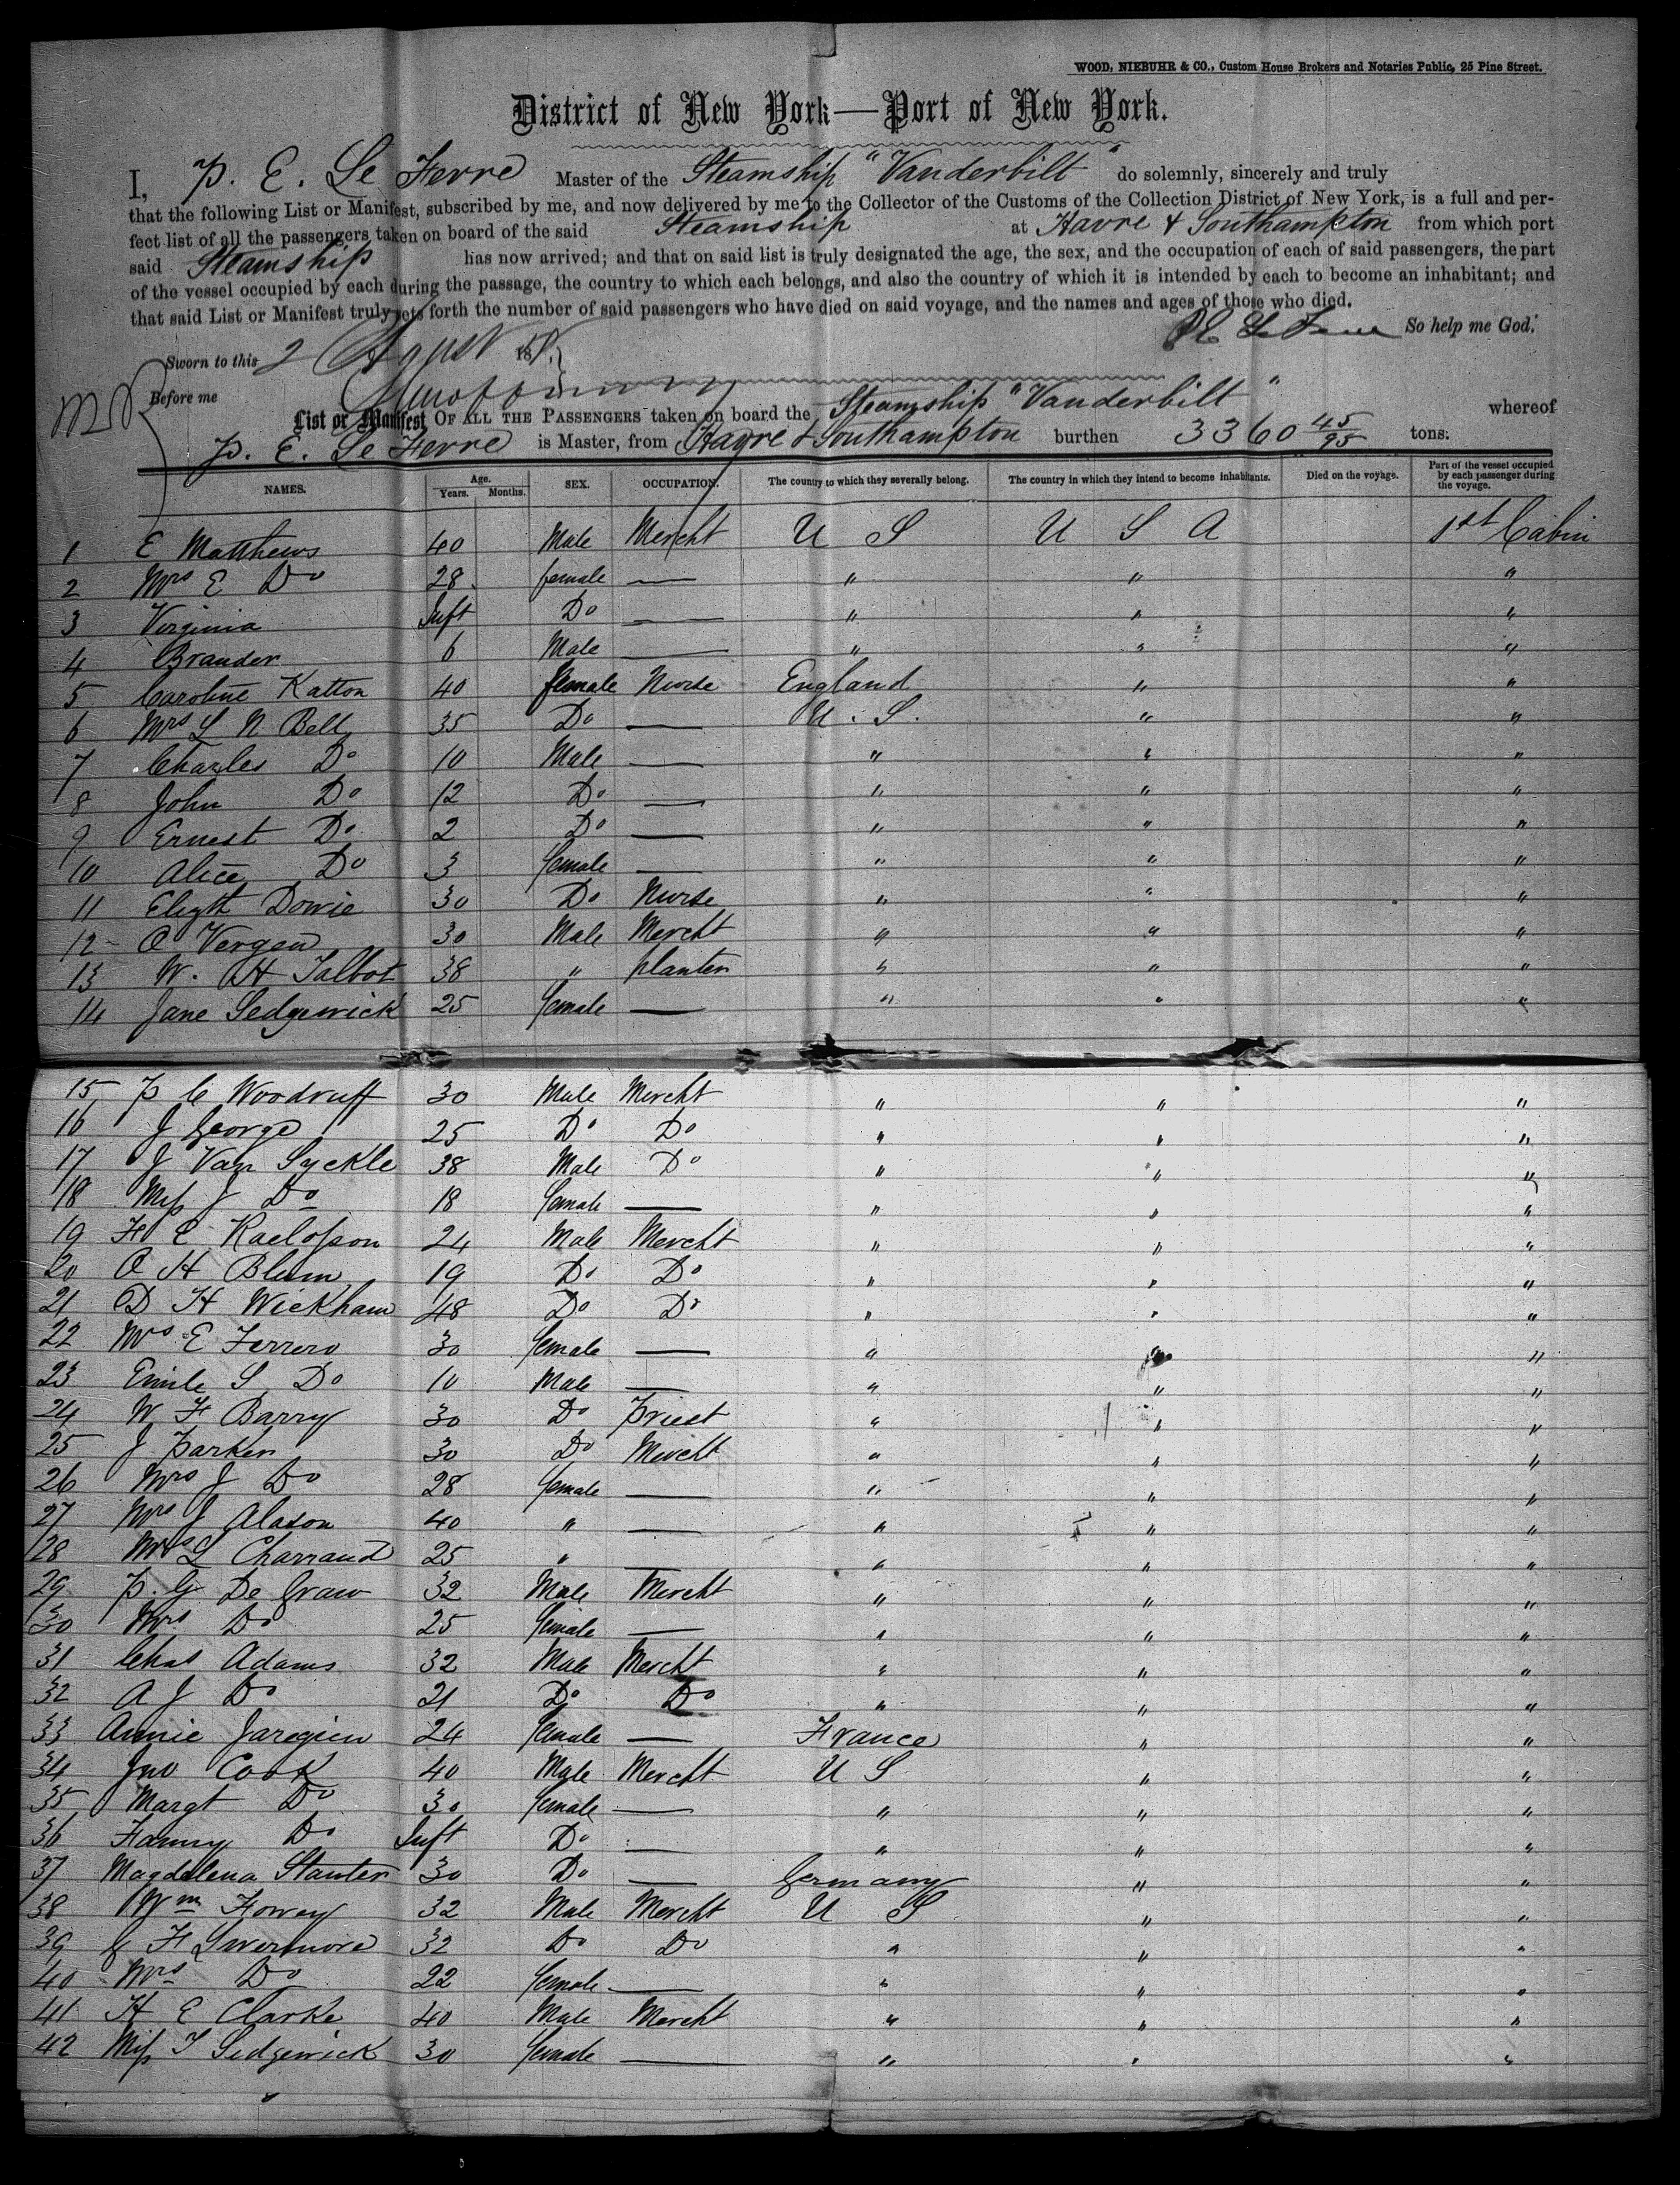 WOOD, NIEBUHR & CO., Custom House Brokers and Notaries Public, 25 Pine Street.
District of New York—Port of New York.
I, P. E. Le Fevre Master of the Steamship "Vanderbilt" do solemnly, sincerely and truly
that the following List or Manifest, subscribed by me, and now delivered by me to the Collector of the Customs of the Collection District of New York, is a full and per-
fect list of all the passengers taken on board of the said Steamship at Havre & Southampton from which port
said Steamship has now arrived; and that on said list is truly designated the age, the sex, and the occupation of each of said passengers, the part
of the vessel occupied by each during the passage, the country to which each belongs, and also the country of which it is intended by each to become an inhabitant; and
that said List or Manifest truly sets forth the number of said passengers who have died on said voyage, and the names and ages of those who died.
P E Le Fevre So help me God.
Sworn to this 2 August 18
Before me
List or Manifest OF ALL THE PASSENGERS taken on board the Steamship "Vanderbilt" whereof
P. E. Le Fevre is Master, from Havre & Southampton burthen 3360 45/95 tons.
NAMES. Age. Years. Months. SEX. OCCUPATION. The country to which they severally belong. The country in which they intend to become inhabitants. Died on the voyage. Part of the vessel occupied by each passenger during the voyage.
1 E Matthews 40 Male Mercht U S U S A 1st Cabin
2 Mrs E Do 28 female — " " "
3 Virginia Inft Do — " " "
4 Brander 6 Male — " " "
5 Caroline Katton 40 female Nurse England " "
6 Mrs L N Bell 35 Do — U. S. " "
7 Charles Do 10 Male — " " "
8 John Do 12 Do — " " "
9 Ernest Do 2 Do — " " "
10 Alice Do 3 female — " " "
11 Elizth Dowie 30 Do Nurse " " "
12 A Vergen 30 Male Mercht " " "
13 W. H Talbot 38 " planter " " "
14 Jane Sedgewick 25 female — " " "
15 P C Woodruff 30 Male Mercht " " "
16 J George 25 Do Do " " "
17 J Van Syckle 38 Male Do " " "
18 Miss J Do 18 female — " " "
19 F E 24 Male Mercht " " "
20 A H Blum 19 Do Do " " "
21 D H Wickham 48 Do Do " " "
22 Mrs E Ferrero 30 female — " " "
23 Emile S Do 10 Male — " " "
24 W F Barry 30 Do Priest " " "
25 J Parker 30 Do Mercht " " "
26 Mrs J Do 28 female — " " "
27 Mrs J Alason 40 " — " " "
28 Mrs L Charraud 25 " — " " "
29 P. G De Graw 32 Male Mercht " " "
30 Mrs Do 25 female — " " "
31 Chas Adams 32 Male Mercht " " "
32 A J Do 21 Do Do " " "
33 Annie 24 female — France " "
34 Jno Cook 40 Male Mercht U S " "
35 Margt Do 30 female — " " "
36 Fanny Do Inft Do — " " "
37 Magdelena Stauter 30 Do — Germany " "
38 Wm 32 Male Mercht U S " "
39 F Livermore 32 Do Do " " "
40 Mrs Do 22 female — " " "
41 H E Clarke 40 Male Mercht " " "
42 Miss Sedgewick 30 female — " " "